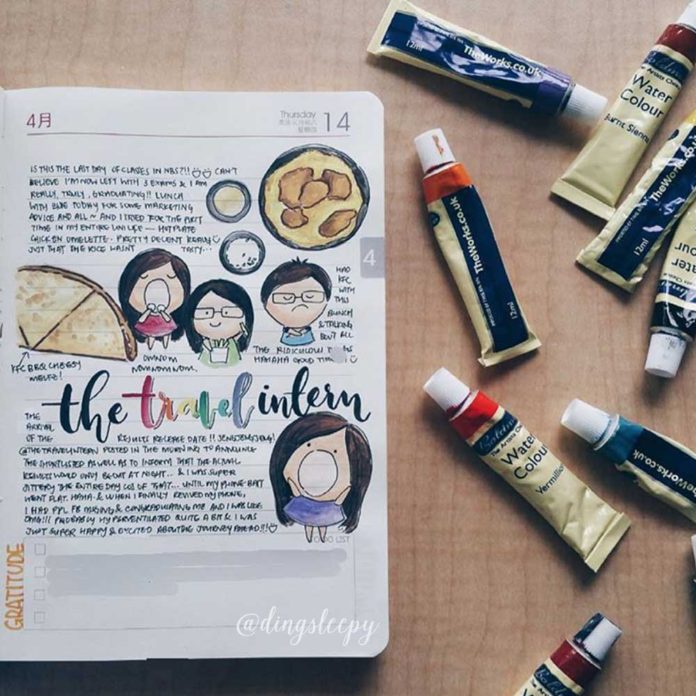 4月
Thursday
14
IS THIS THE LAST DAY OF CLASSES IN NBS?!! CAN'T
BELIEVE I'M NOW LEFT WITH 3 EXAMS & I AM
REALLY, TRULY, GRADUATING!! LUNCH
WITH BLUE TODAY FOR SOME MARKETING
ADVICE AND ALL ~ AND I TRIED FOR THE FIRST
TIME IN MY ENTIRE UNI LIFE — HOTPLATE
CHICKEN OMELETTE - PRETTY DECENT REALLY
JUST THAT THE RICE WASN'T TASTY...
4
HAD
KFC
WITH
THIS
BUNCH
& TALKING
BOUT ALL
THE RIDICULOUS
HAHAHA GOOD
KFC BBQ CHEESY
MELTZ!
OMNOM
NOMNOMNOM.
the travel intern
THE
ARRIVAL
OF THE
RESULTS RELEASE DATE!!
@THETRAVELINTERN POSTED IN THE MORNING TO ANNOUNCE
THE SHORTLISTED AS WELL AS TO INFORM THAT THE ACTUAL
RESULTS WOULD ONLY BE OUT AT NIGHT... & I WAS SUPER
JITTERY THE ENTIRE DAY COS OF THAT... UNTIL MY PHONE BATT
WENT FLAT. HAHA. & WHEN I FINALLY REVIVED MY PHONE,
I HAD PPL FB MSGING & CONGRADULATING ME AND I WAS LIKE
OMG!!! PROBABLY HYPERVENTILATED QUITE A BIT & I WAS
JUST SUPER HAPPY & EXCITED ABOUT THE JOURNEY AHEAD!!!
TO DO LIST
GRATITUDE
@dingsleepy
TheWorks.co.uk
12ml
Water
Colour
Burnt Sienna
TheWorks.co.uk
12ml
TheWorks.co.uk
12ml
Water
Colour
The Artists Choice
Water
Colour
Vermilion
TheWorks.co.uk